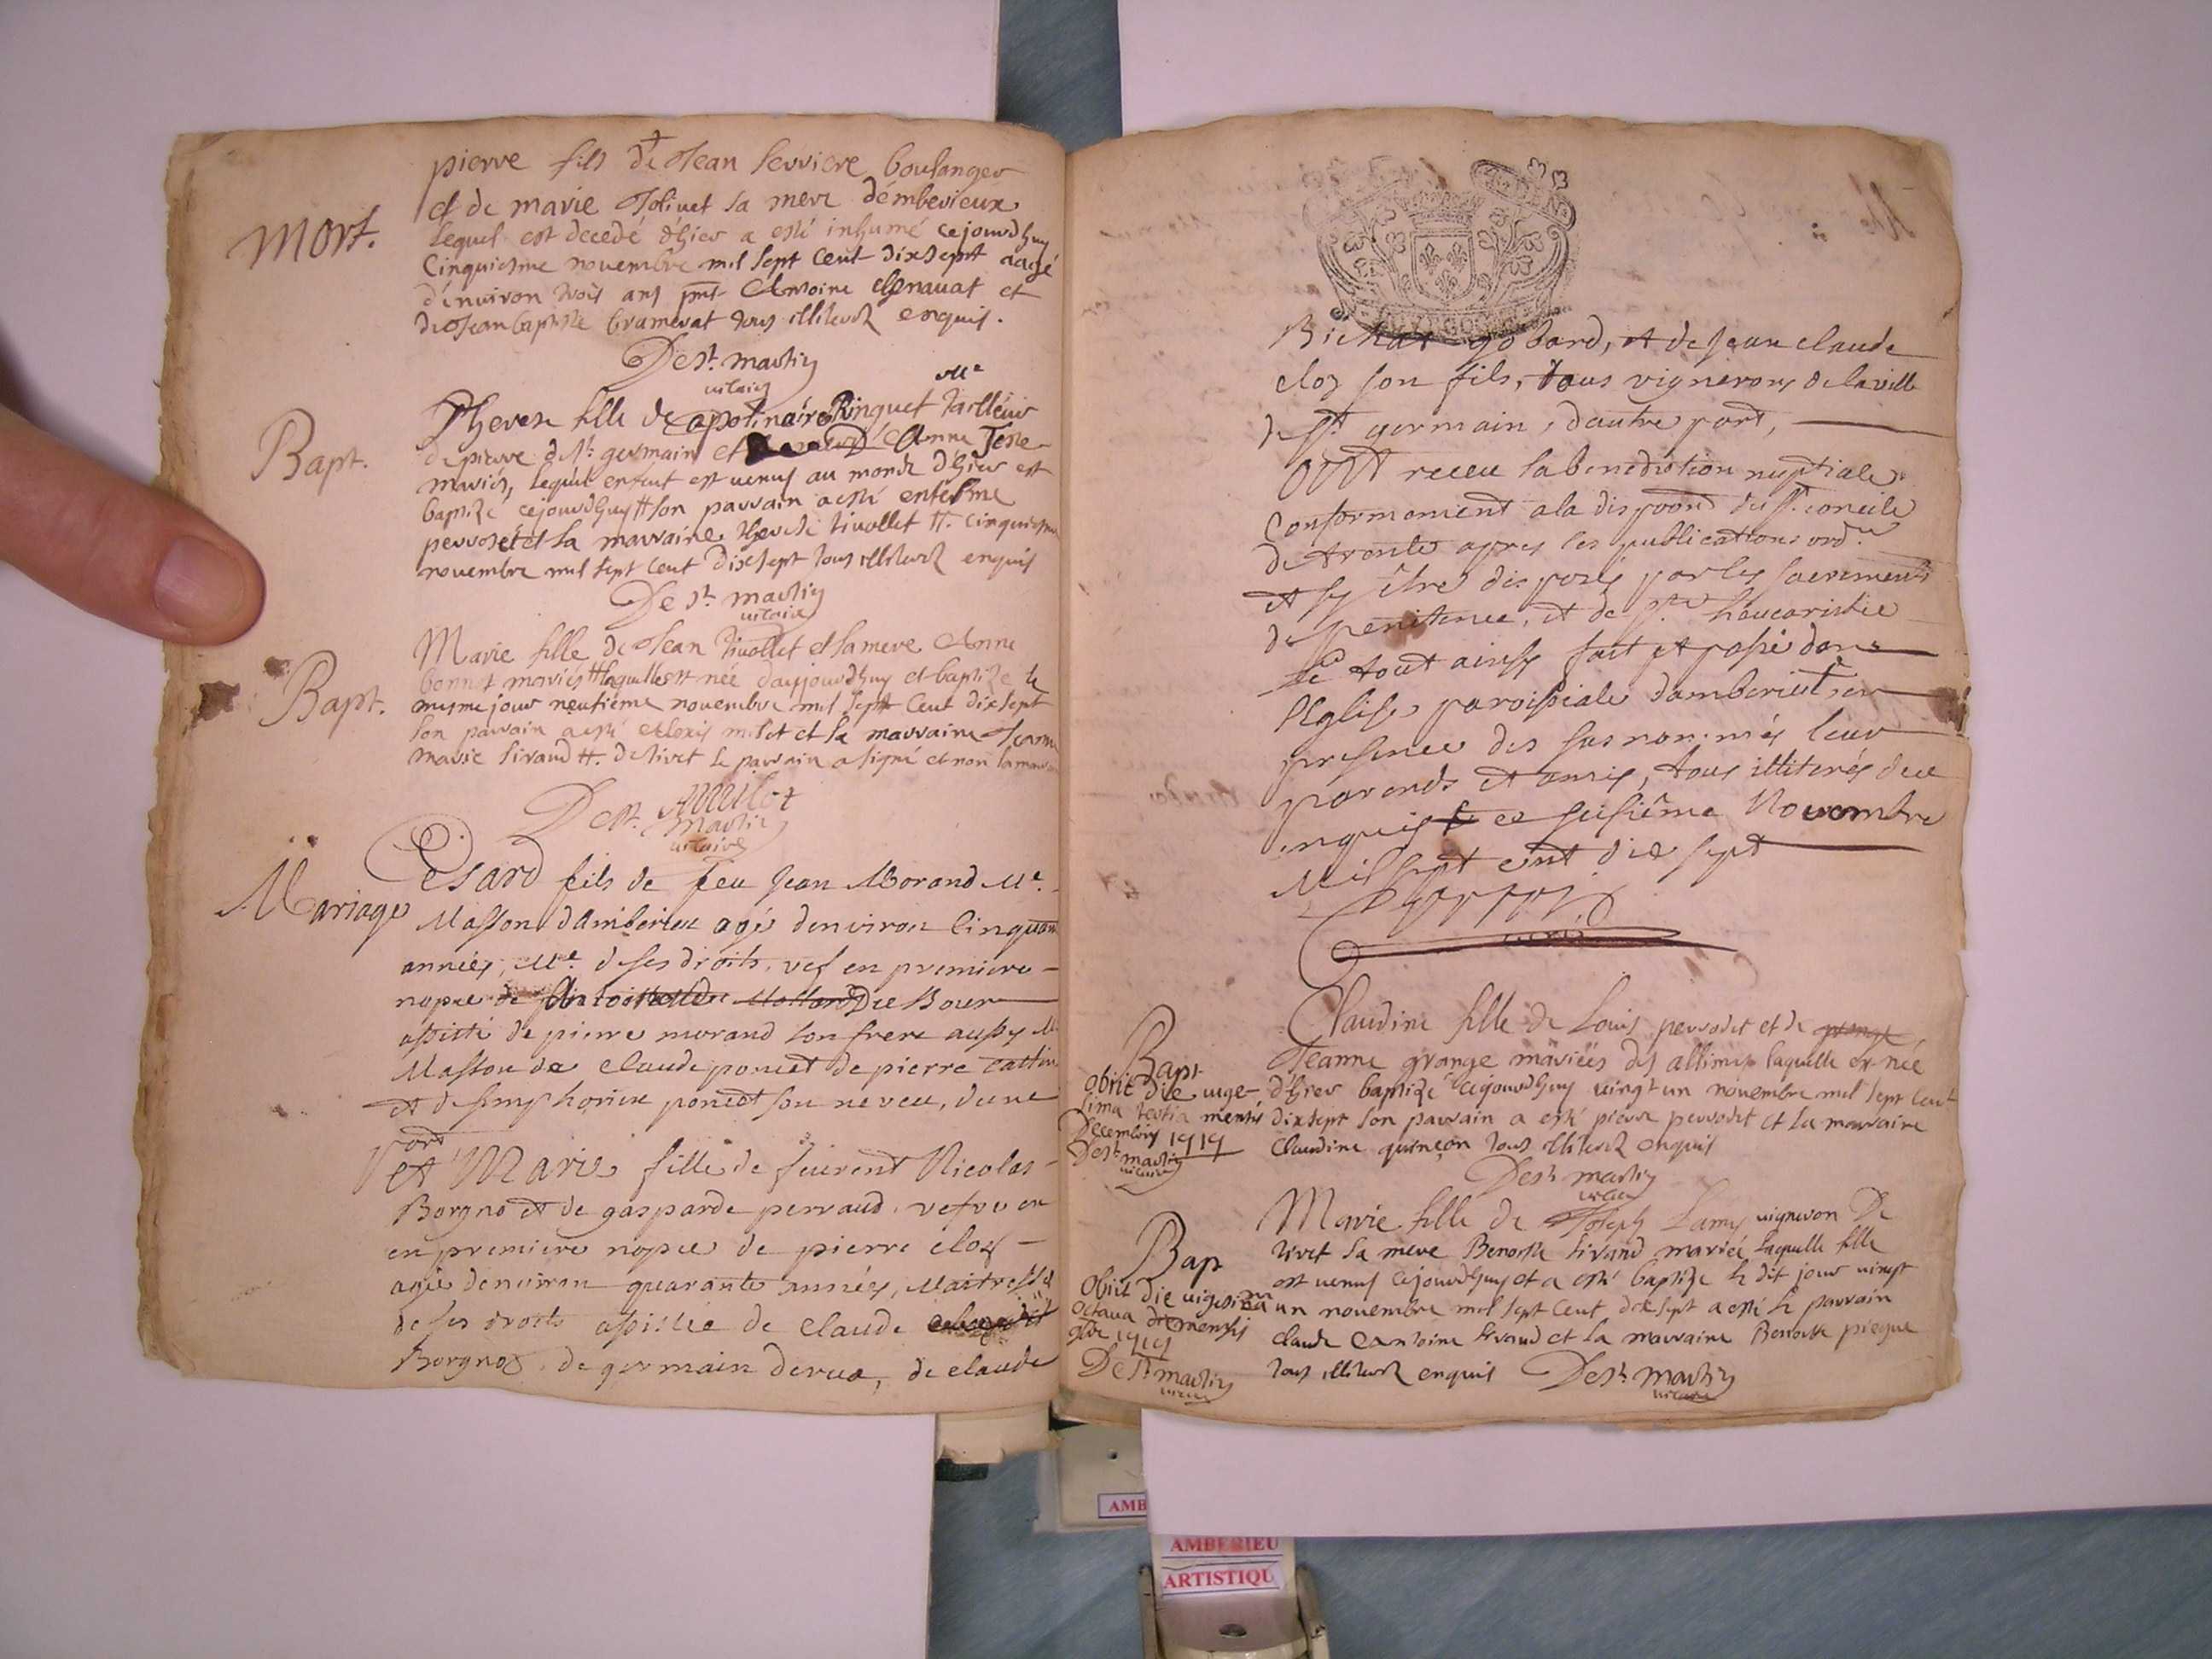 pierre fils de Jean serviere boulanger
et de marie Jolivet sa mere d'émberieux
Mort.
lequel est decedé d'hier a esté inhumé cejourdhuy
Cinquiesme novembre mil sept cent dixsept aagé
d'énviron trois ans pnt Antoine et
de Jean baptiste bramerat tous illiterez enquis.
De st. martin
vicaire
Me
Therese fille de apolinaire Ringuet tailleur
Bapt.
de pierre de st. germain et Anne Teste
mariés, lequel enfent est venus au monde d'hier est
baptizé cejourdhuy # son parrain a esté enteſme
perrodet et la marraine therese tivollet #. cinquiesme
novembre mil sept cent dixsept tous illiterez enquis
De st. martin
vicaire
Marie fille de Jean tivollet et sa mere Anne
bonnet mariés # laquelle est née d'aujourdhuy et baptizé le
Bapt.
mesme jour neufieme novembre mil sept Cent dixsept
son parrain a esté Alexis milot et la marraine Jeanne
marie sivand #. de tiret le parrain a signé et non la marraine
AMilot
De st. martin
vicaire
Mariage
Cesard fils de feu Jean Morand Me.
Masson d'Amberieu agé denviron Cinquante
années, Me. de ses droits, vef en premiere
nopce de Die Boure
assisté de pierre morand son frere aussy Me
Masson de Claude poncet de pierre cattin
et de simphorien poncet son neveu, dune
part
et Marie fille de feurent Nicolas
Borgno et de gasparde perraud, vefve en
en premiere nopce de pierre cloz
agée denviron quarante années, Maitresse
de ses droits assistée de claude
Borgnoz, de germain derua, de claude
Bichat gobard, et de Jean claude
cloz son fils, tous vignerons de la ville
de st. germain, dautre part,
ONT receu la benediction nuptiale
Conformement a la dispoon du st. concile
de trente apres les publications ordres
et sy être disposés par les sacrements
de penitence, et de ste heucaristie
le tout ainsy fait et passé dans
l'eglise paroissiale damberieu, en
presence des susnommés leur
parends et amis, tous illiterés deue
enquis ce seisiême Novembre
Mil sept cent dix sept
Claudine fille de Louis perrodet et de
Bapt
Jeanne grange mariés des allimes laquelle est née
d'hier baptizé cejourdhuy vingt un novembre mil sept cent
dixsept son parrain a esté pierre perrodet et la marraine
Claudine quinson tous illiterez enquis
De st. martin
vicaire
obiit die vige-
sima tertia mensis
Decembris 1719
De st. martin
vicaire
Marie fille de Joseph Lamy vigneron De
tiret sa mere Benoite sivand mariés laquelle fille
Bap
est venus cejourdhuy et a esté baptizé le dit jour vingt
un novembre mil sept cent dixsept a esté le parrain
claude Antoine sivand et la marraine Benoite
tous illiterez enquis De st. martin
vicaire
Obiit die vigesima
octava mensis
1719
De st. martin
vicaire
AMB
AMBERIEU
ARTISTIQU